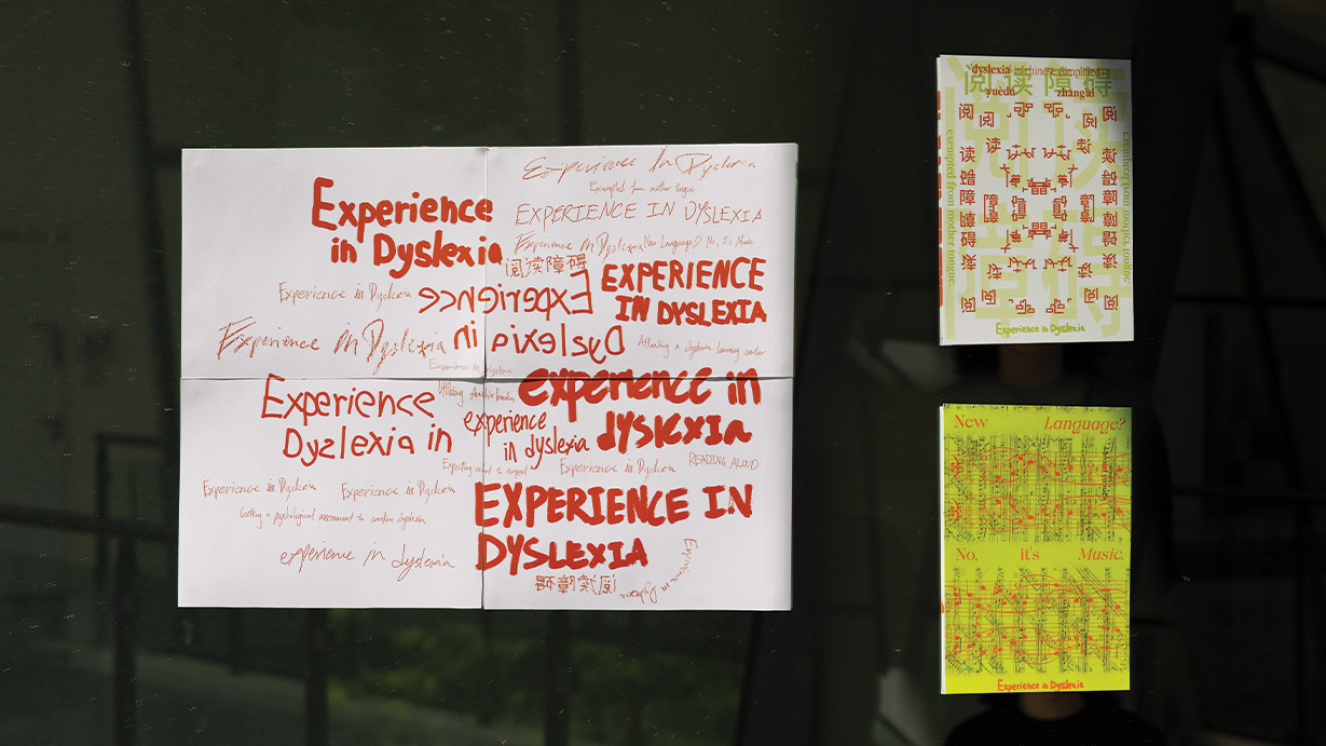 Experience
in Dyslexia
Experience In Dyslexia
Exempted from mother tongue
EXPERIENCE IN DYSLEXIA
Experience in Dyslexia
New Language? No, it's Music
阅读障碍
EXPERIENCE
IN DYSLEXIA
Experience in Dyslexia
Experience
Experience in Dyslexia
in Dyslexia
Attending a dyslexia learning center
Experience in Dyslexia
experience in
dyslexia
Experience
Dyslexia in
experience
in dyslexia
Experience in Dyslexia
READING ALOUD
Experience in Dyslexia
Experience in Dyslexia
Getting a psychological assessment to confirm dyslexia
EXPERIENCE IN
DYSLEXIA
experience in dyslexia
阅读障碍
Experience in Dyslexia
'dyslexia' in chinese simplified
阅读障碍
yuedu zhangai
阅读
障碍
exempted from mother tongue.
exempted from mother tongue.
Experience in Dyslexia
New Language?
No, it's Music.
Experience in Dyslexia